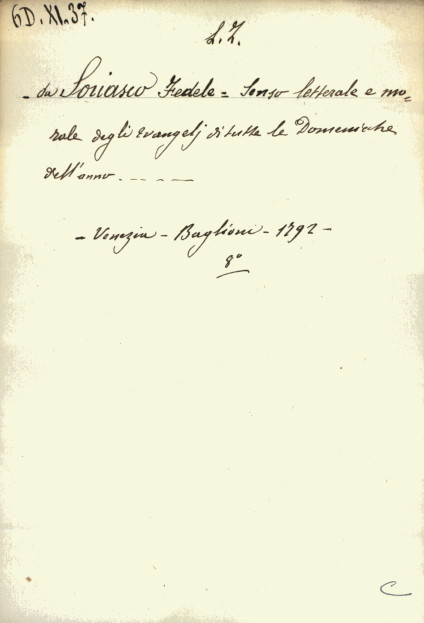 6D. XI. 37.
L. Z.
- da Soriasco Fedele = Senso letterale e mo=
rale degli Evangelj di tutte le Domeniche
dell'anno - - - - -
- Venezia - Baglioni - 1792 -
8°
C